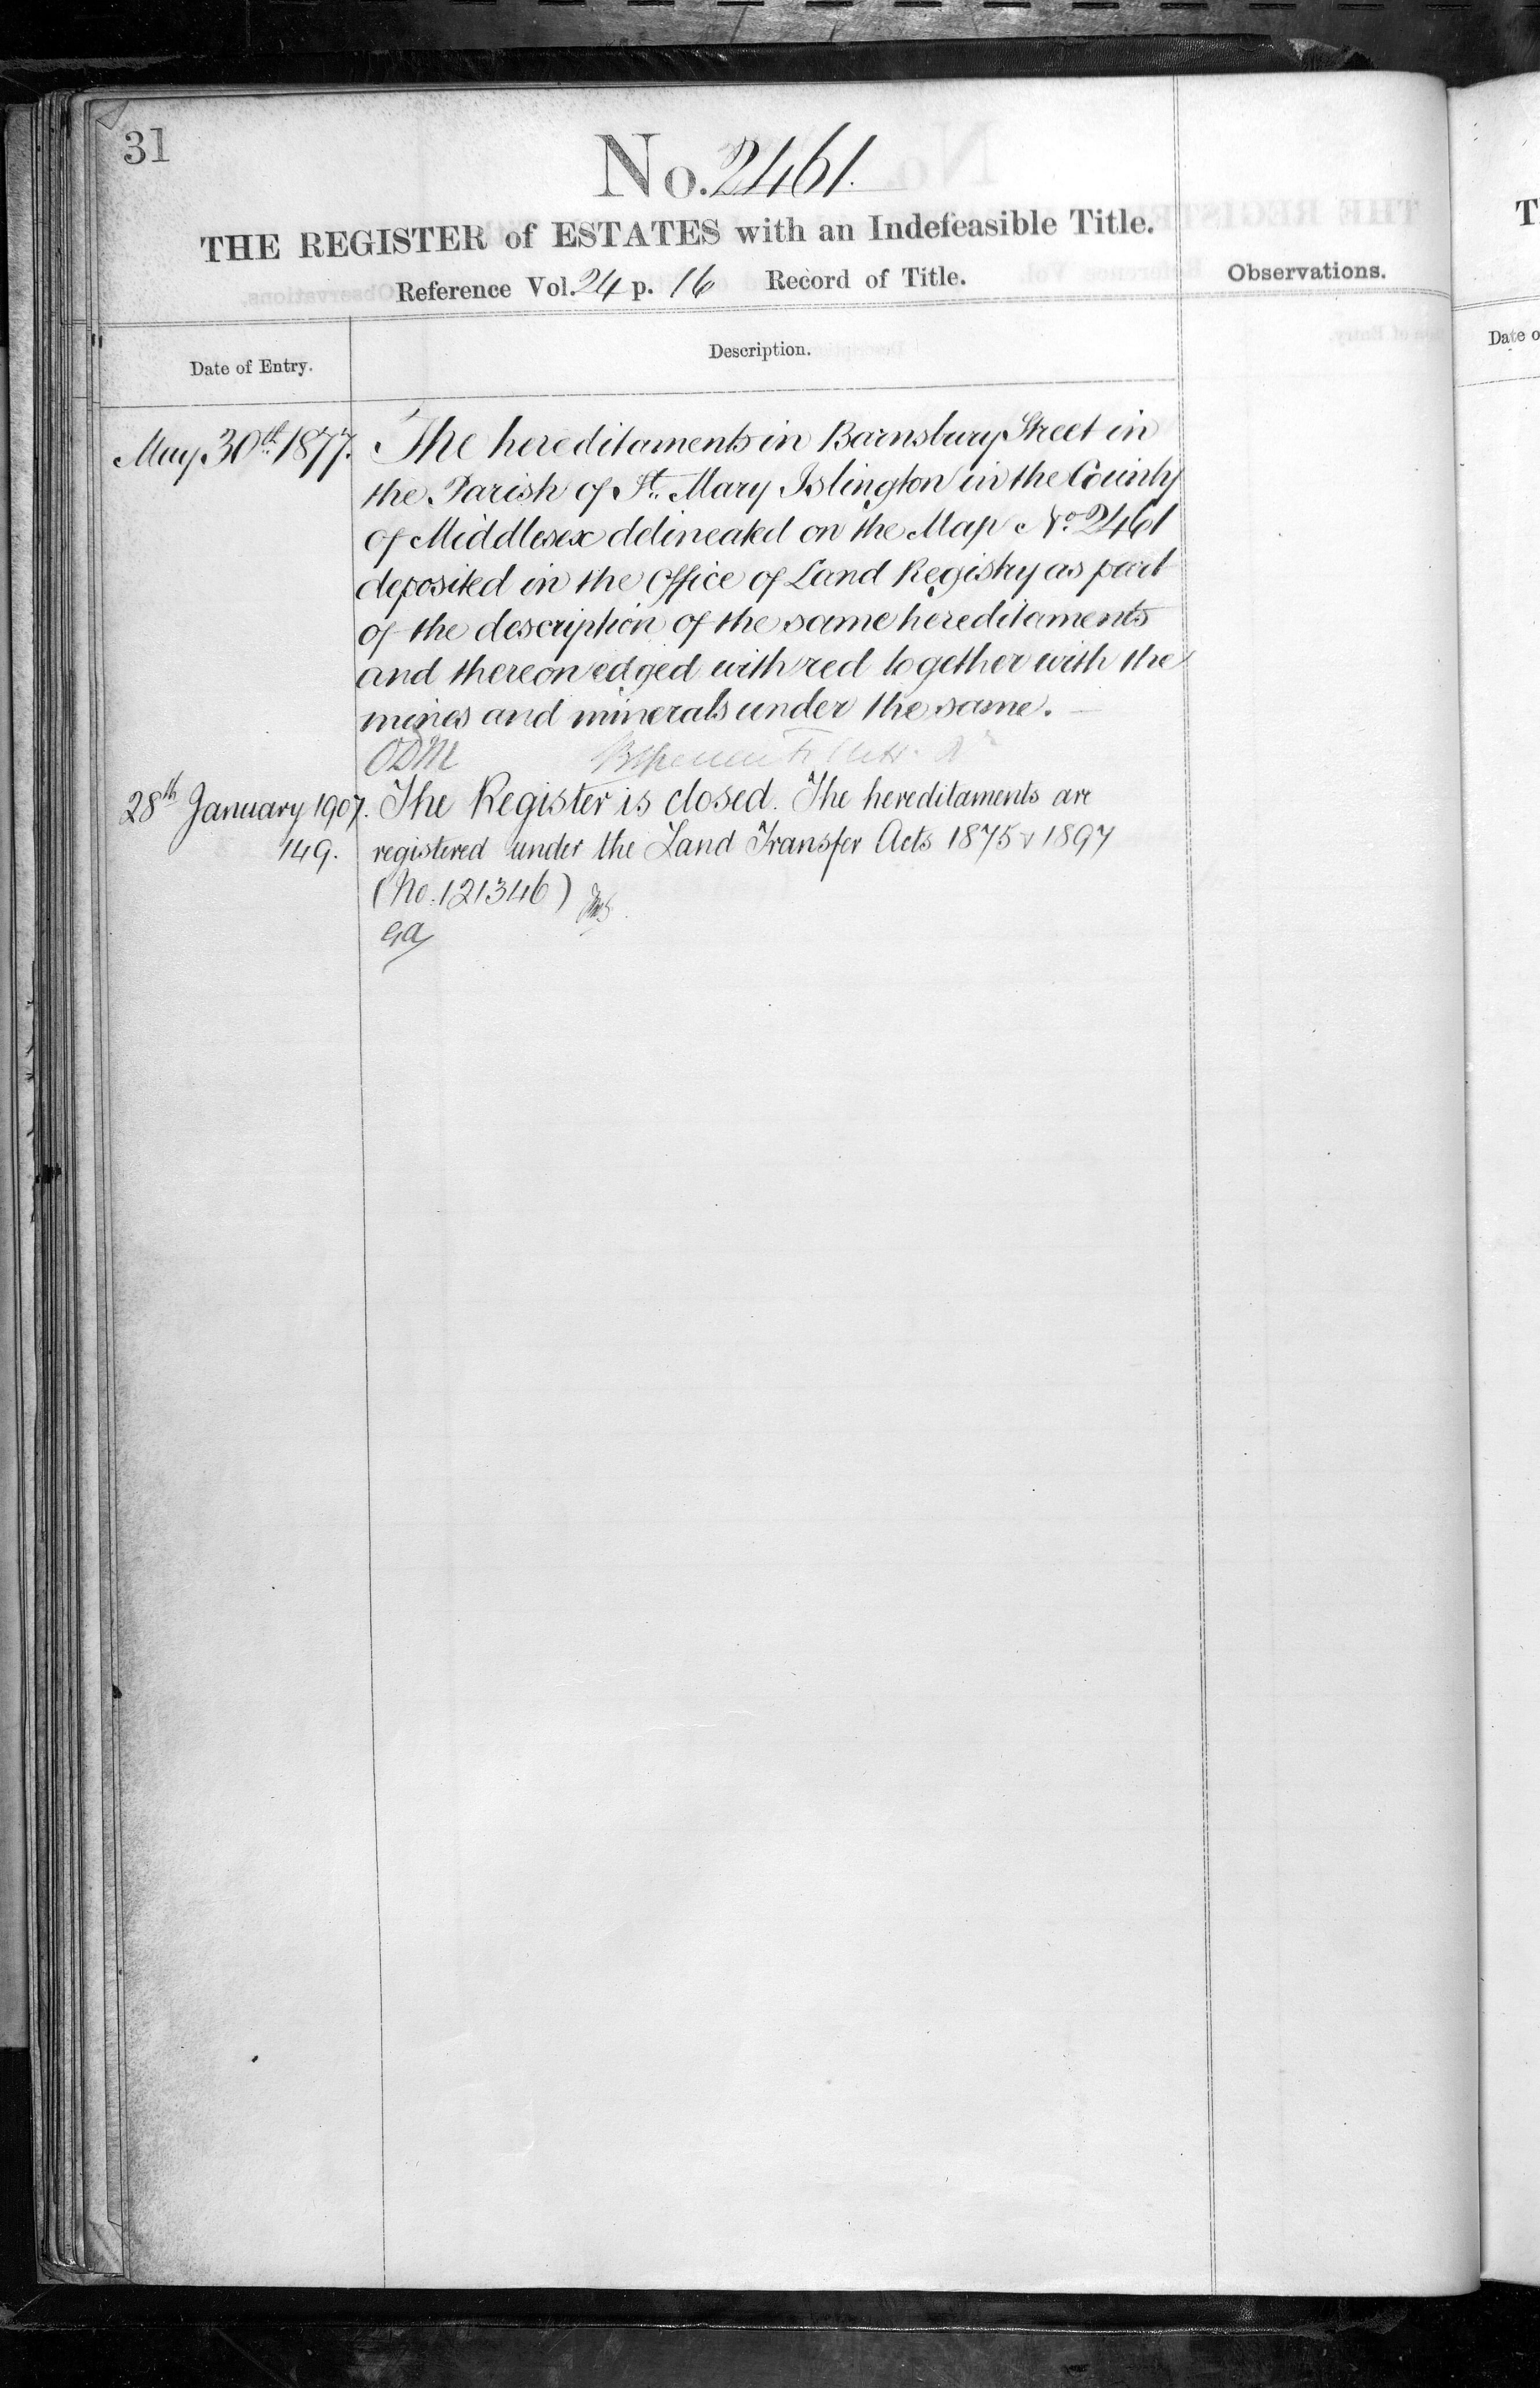 31
No. 2461.
THE REGISTER of ESTATES with an Indefeasible Title.
Reference Vol. 24 p. 16 Record of Title.
Observations.
Date of Entry.
Description.
May 30th 1877. The hereditaments in Barnsbury Street in
the Parish of St. Mary Islington in the County
of Middlesex delineated on the Map No. 2461
deposited in the Office of Land Registry as part
of the description of the same hereditaments
and thereon edged with red together with the
mines and minerals under the same.
ODM
28th January 1907. The Register is closed. The hereditaments are
149. registered under the Land Transfer Acts 1875 & 1897
(No. 121346)
T
Date o